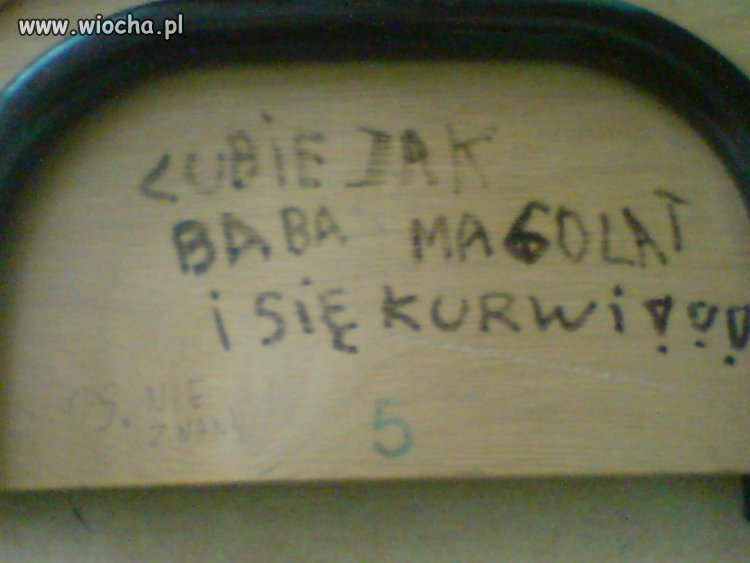 www.wiocha.pl
LUBIE JAK
BABA MA 60 LAT
i SIĘ KURWi!!!
NIE
5